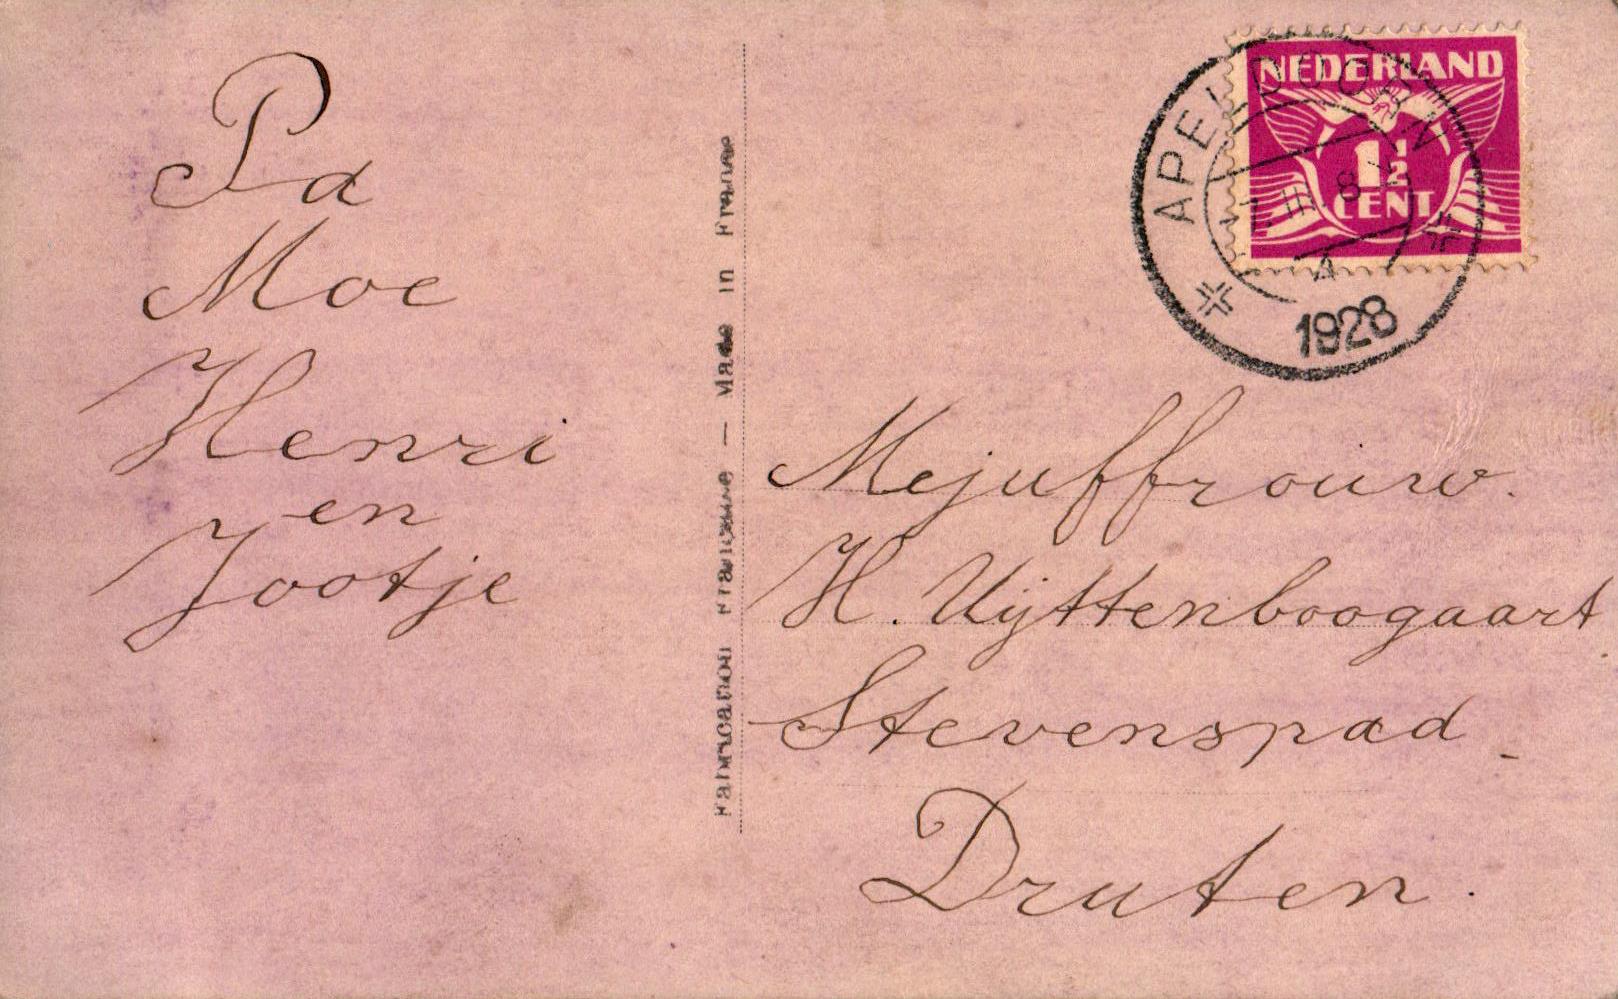 Pa
Moe
Henri
en
Jootje
Fabrication Française — Made in France
NEDERLAND
1½
CENT
APELDOORN
III 8
A
1928
Mejuffrouw.
H. Uijttenboogaart
Stevenspad
Druten.